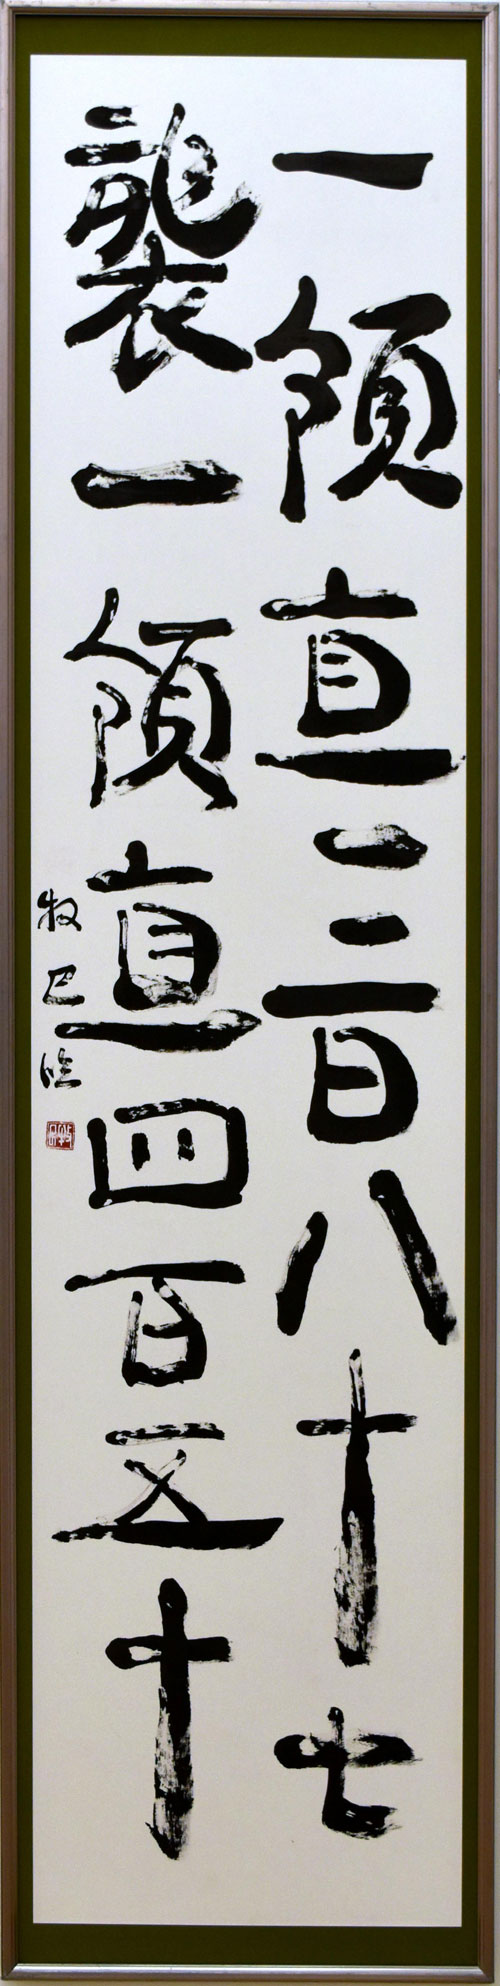 一領直二百八十七
襲一領直四百五十
牧巳臨